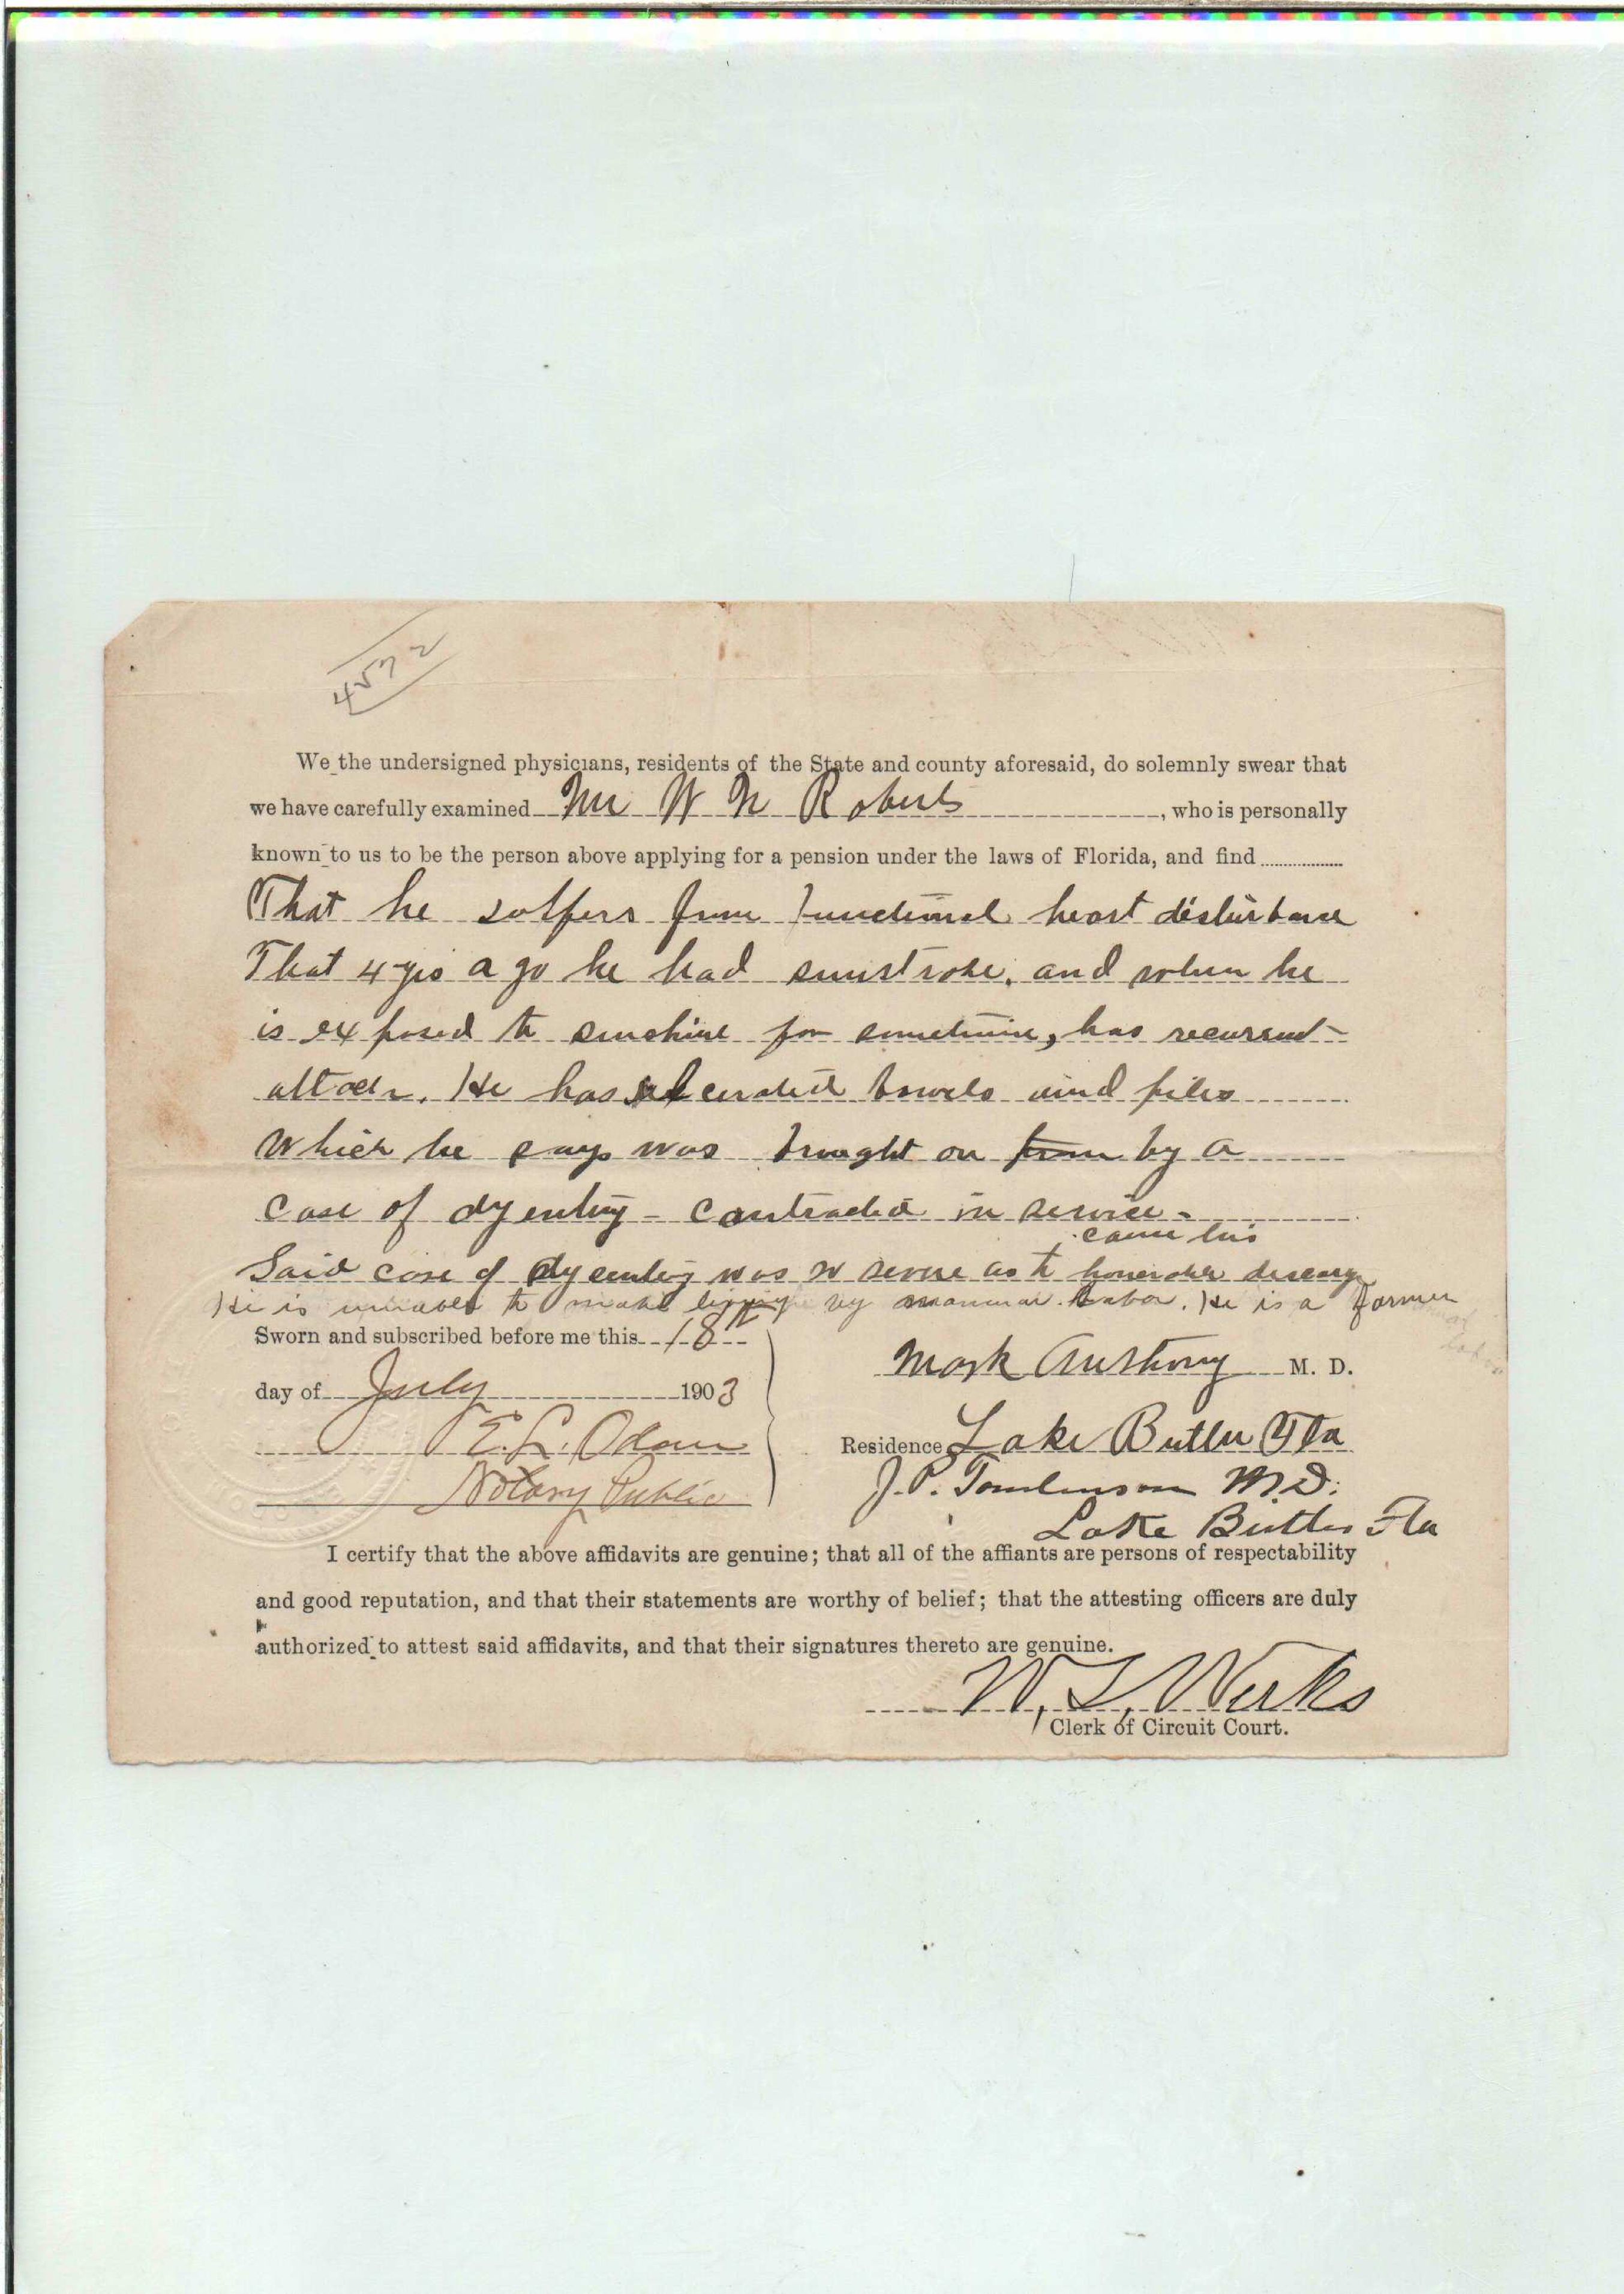 4572
We the undersigned physicians, residents of the State and county aforesaid, do solemnly swear that
we have carefully examined Mr W N Roberts, who is personally
known to us to be the person above applying for a pension under the laws of Florida, and find
That he suffers from functional heart disturbance
That 4 yrs ago he had sunstroke, and when he
is exposed to sunshine for sometime, has recurrent
attack. He has ulcerated bowels and piles
Which he says was brought on from by a
case of dyentery - contracted in service -
cause his
Said case of dyentery was so severe as to honorable discarge
He is unabled to make living by manual Labor. He is a Farmer
Sworn and subscribed before me this 18th
day of July 1903
E. L. Odom
Notary Public
Mark Anthony M. D.
Residence Lake Butler Fla
J. P. Tomlinson M.D.
Lake Butler Fla
I certify that the above affidavits are genuine; that all of the affiants are persons of respectability
and good reputation, and that their statements are worthy of belief; that the attesting officers are duly
authorized to attest said affidavits, and that their signatures thereto are genuine.
W. L. Weeks
Clerk of Circuit Court.